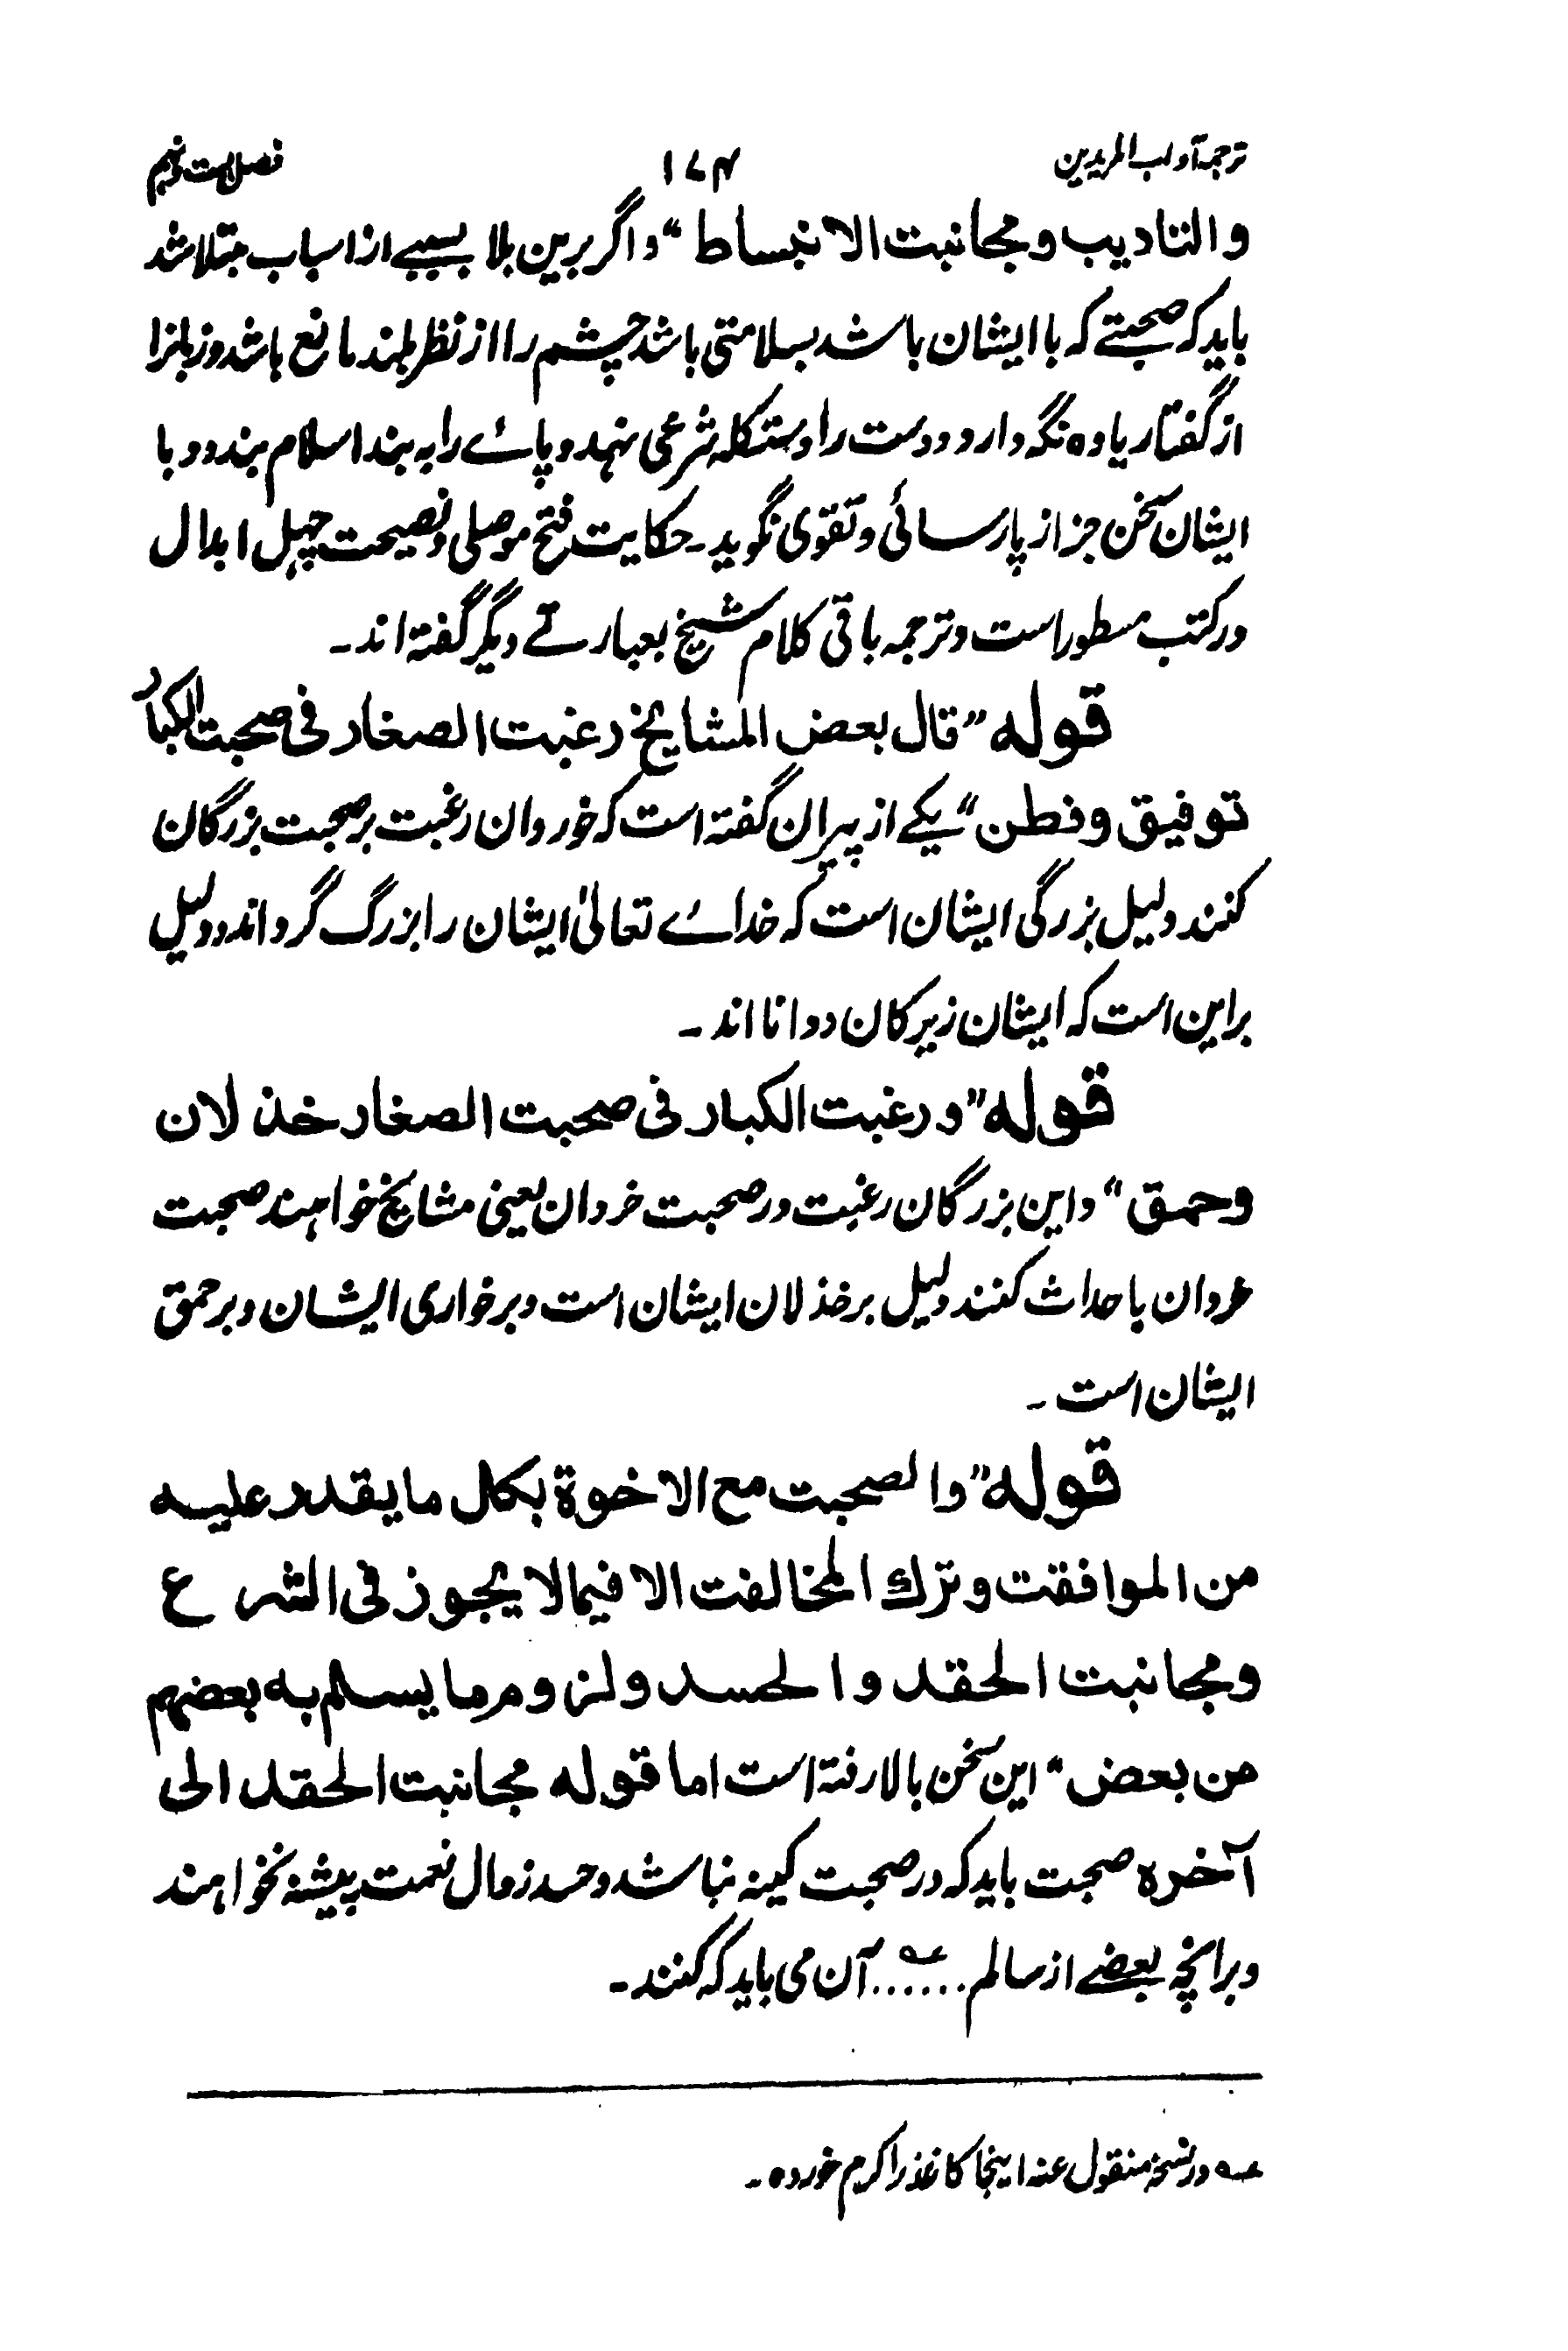 ترجمہ آداب المریدین ۱۷۴ فصل بست و نہم
والتادیب ومجانبت الانبساط“ واگر برین بلا بسببے از اسباب مبتلا شد
باید کہ صحبتے کہ با ایشان باشد بسلامتی باشد چشم را از نظر بلند مانع باشد و زبانرا
از گفتار یاوہ نگہ دارد و دست را دستکلہ شرعی نہد و پاے را بہ بند اسلام بندد و با
ایشان سخن جز از پارسائی و تقوی نگوید۔ حکایت فتح موصلی و نصیحت چہل ابدال
در کتب مسطور است و ترجمہ باقی کلام شیخ بعبارتے دیگر گفتہ اند۔
قولہ ”قال بعض المشایخ رغبت الصغار فی صحبت الکبار
توفیق وفطن“ یکے از پیران گفتہ است کہ خوردان رغبت بر صحبت بزرگان
کنند دلیل بزرگی ایشان است کہ خداے تعالیٰ ایشان را بزرگ گرداند و دلیل
براین است کہ ایشان زیرکان و دانا اند۔
قولہ ”ورغبت الکبار فی صحبت الصغار خذلان
وحمق“ و این بزرگان رغبت در صحبت خردان یعنی مشایخ خواہند صحبت
خردان با حداث کنند دلیل بر خذلان ایشان است و بر خواری ایشان و بر حمق
ایشان است۔
قولہ ”والصحبت مع الاخوة بکل ما یقدر علیہ
من الموافقت وترک المخالفت الا فیما لا یجوز فی الشرع
ومجانبت الحقد والحسد ولزوم ما یسلم بہ بعضهم
من بعض“ این سخن بالا رفتہ است اما قولہ مجانبت الحقد الی
آخرہ صحبت باید کہ در صحبت کینہ نباشد و حسد زوال نعمت پیشہ نخواہند
و برانچہ بعضے از سالم ...... عہ آن می باید کہ کنند۔
عہ در نسخہ منقول عنہ اینجا کاغذ را کرم خوردہ۔